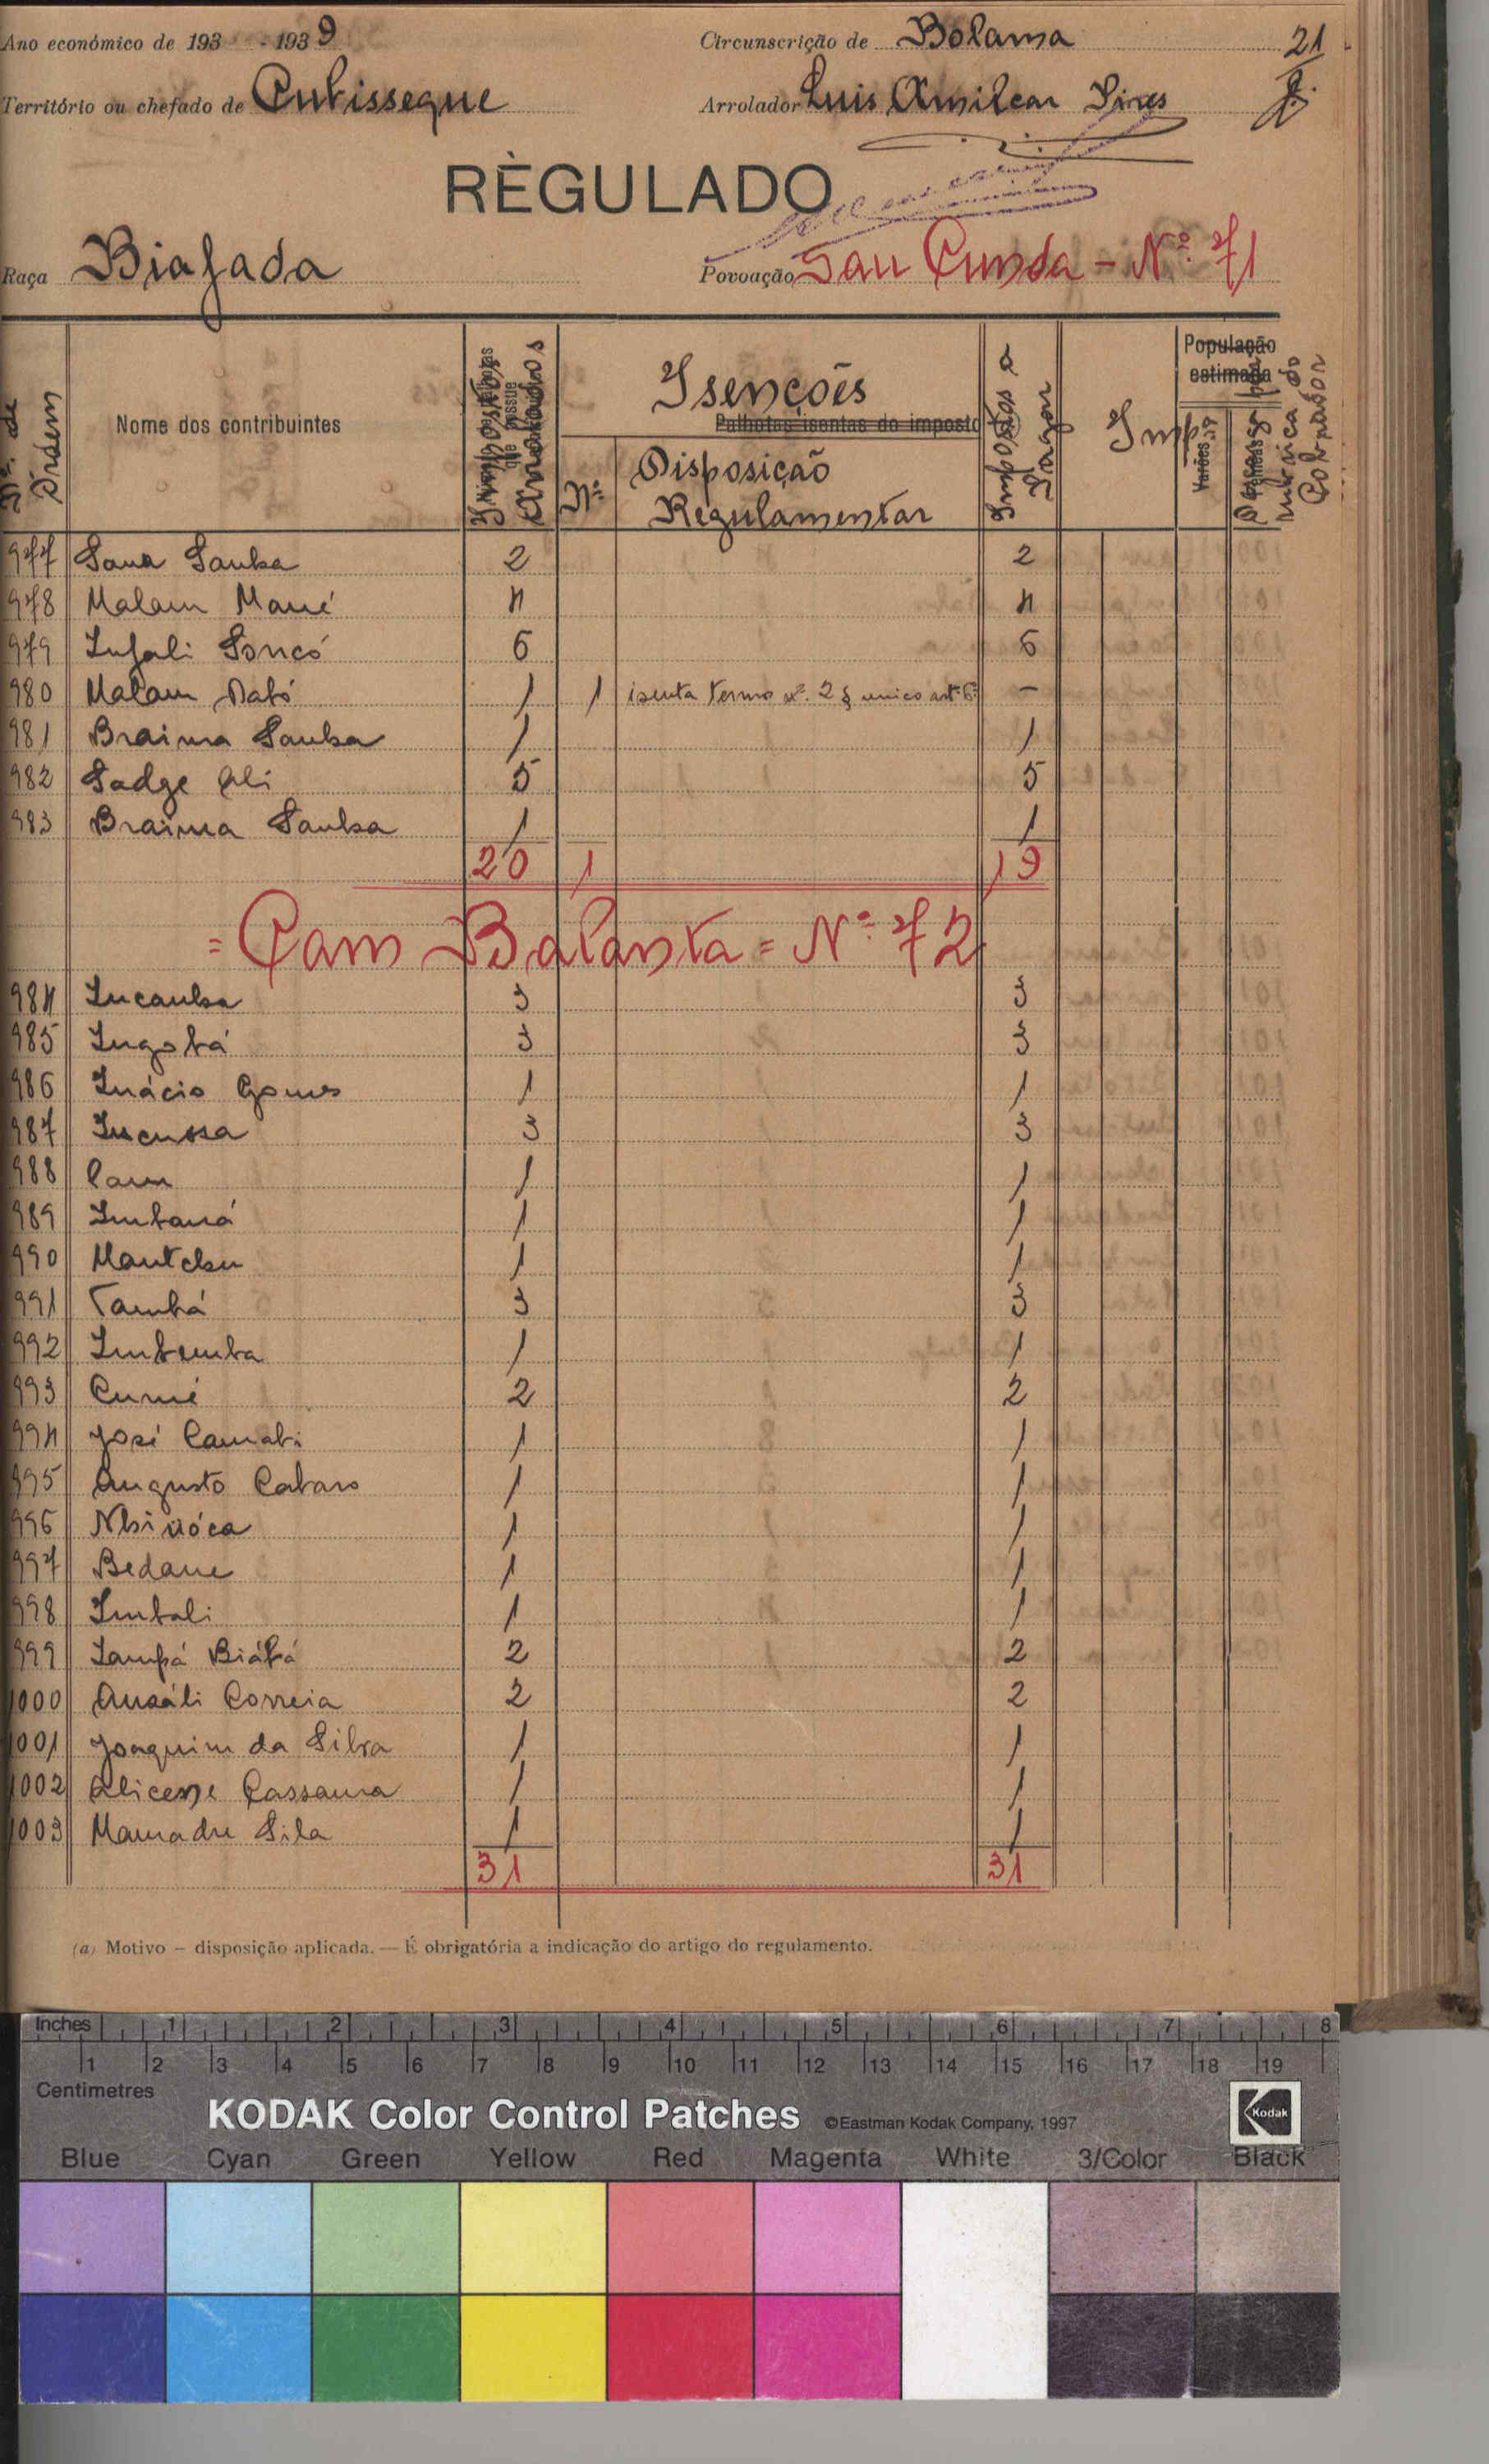 Ano económico de 193 - 1939
Circunscrição de Bolama
21
Território ou chefado de Cubisseque
Arrolador Luis Amilcar Pires
RÈGULADO
Raça Biafada
Povoação San Cunda - Nº. 71
Nº. de Ordem
Nome dos contribuintes
Impostos Arrolados
Isenções
Palhotas isentas do imposto
Nº
Disposição Regulamentar
Impostos a Pagar
Imp
População estimada
Varões
Rubrica do Cobrador
977 Sana Sanha 2 2
978 Malam Mané 4 4
979 Infali Soncó 6 6
980 Malam Nabó 1 1 isenta termo nº. 2 § unico artº 6º -
981 Braima Sanha 1 1
982 Sadge Ali 5 5
983 Braima Sanha 1 1
20 1 19
= Cam Balanta = Nº. 72
984 Incanha 3 3
985 Ingobá 3 3
986 Inácio Gomes 1 1
987 Incussa 3 3
988 Cam 1 1
989 Imbaná 1 1
990 Mantchu 1 1
991 Tambá 3 3
992 Imbemba 1 1
993 Cumé 2 2
994 José Camabi 1 1
995 Augusto Cabaro 1 1
996 1 1
997 Bedane 1 1
998 Imbali 1 1
999 Biábá 2 2
1000 Ansáli Correia 2 2
1001 Joaquim da Silva 1 1
1002 Alicene Cassama 1 1
1003 Mamadu Sila 1 1
31 31
(a) Motivo – disposição aplicada. — É obrigatória a indicação do artigo do regulamento.
Inches 1 2 3 4 5 6 7 8
1 2 3 4 5 6 7 8 9 10 11 12 13 14 15 16 17 18 19
Centimetres
KODAK Color Control Patches ©Eastman Kodak Company, 1997 Kodak
Blue Cyan Green Yellow Red Magenta White 3/Color Black